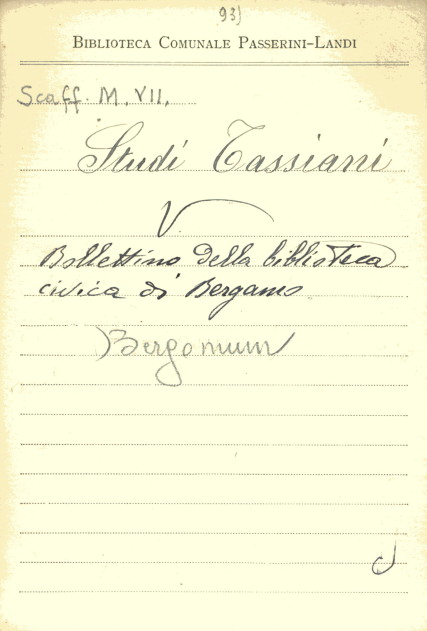 93)
BIBLIOTECA COMUNALE PASSERINI-LANDI
Scaff. M. VII.
Studi Tassiani
V
Bollettino della biblioteca
civica di Bergamo
Bergomum